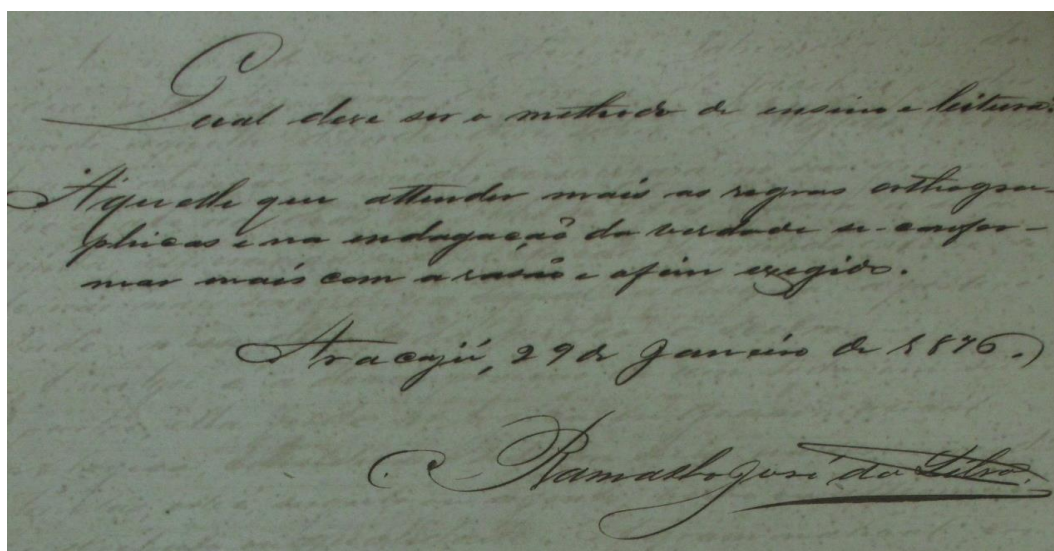 Qual deve ser o methodo de ensino e leitura?
Aquelle que attender mais as regras orthogra-
phicas e na endagação da verdade se-confor-
mar mais com a rasão e o fim exegido.
Aracajú, 29 de Janeiro de 1876.
José da Silva.